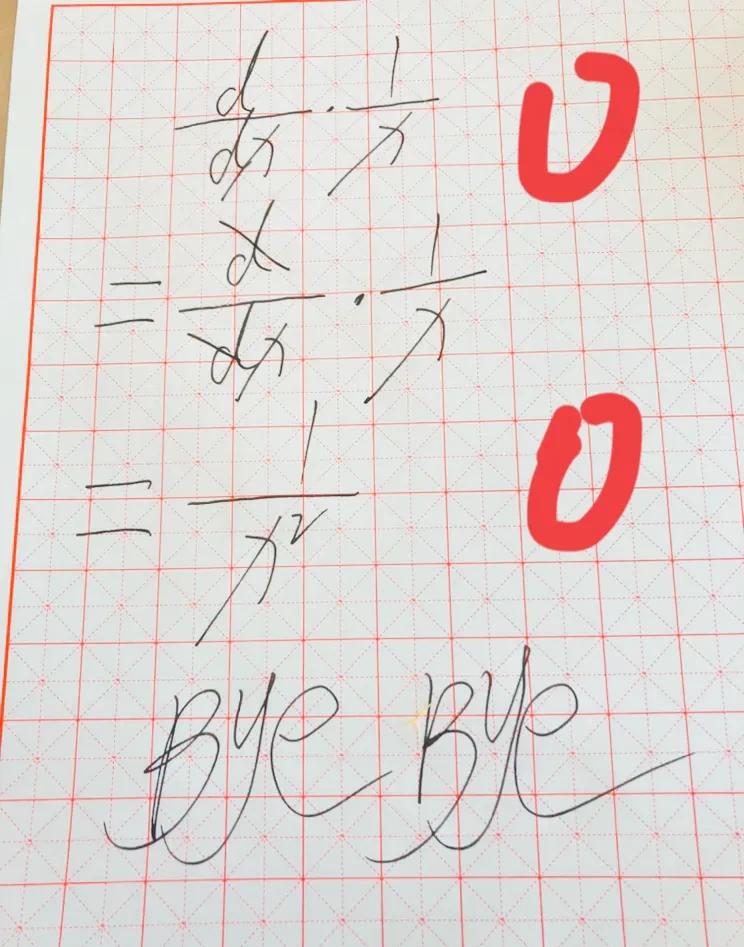 d/dx · 1/x 0
= d/dx · 1/x
= 1/x² 0
Bye Bye